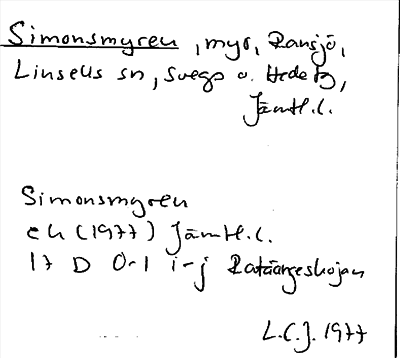 Simonsmyren, myr, Ransjö,
Linsells sn, Svegs o. Hede tg,
Jämtl.l.
Simonsmyren
ek (1977) Jämtl.l.
17 D 0-1 i-j Rataårgeskojan
L.C.J. 1977